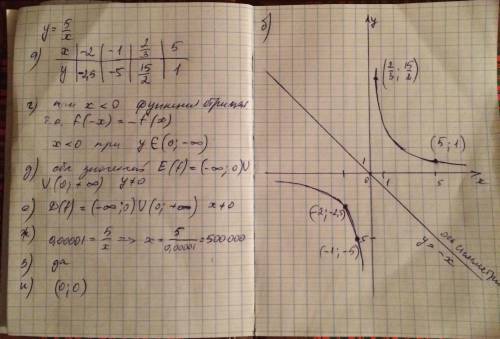 y = 5/x
а) x | -2 | -1 | 2/3 | 5
y | -2,5 | -5 | 15/2 | 1
г) при x < 0 функция
т.о. f(-x) = -f(x)
x < 0 при y ∈ (0; -∞)
д) обл. значений E(f) = (-∞; 0) ∪
∪ (0; +∞) y ≠ 0
е) D(f) = (-∞; 0) ∪ (0; +∞) x ≠ 0
ж) 0,00001 = 5/x => x = 5/0,00001 = 500 000
з) да
и) (0; 0)
б)
y
(2/3; 15/2)
(5; 1)
1
0
1
5
x
(-2; -2,5)
(-1; -5)
-5
y = -x
ось симметрии